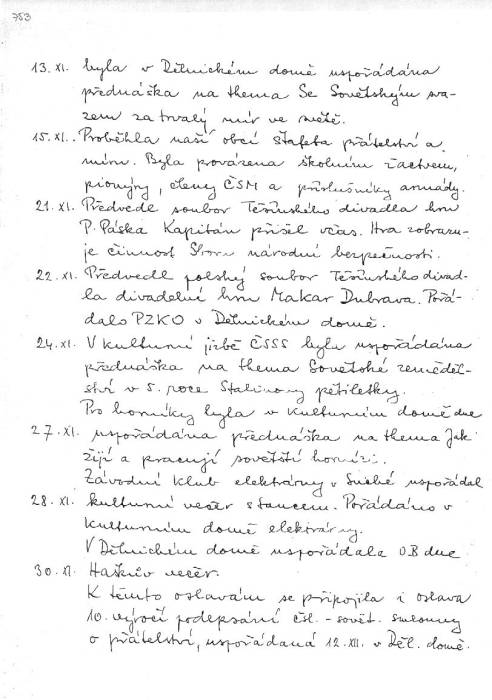 753
13.XI. byla v Dělnickém domě uspořádána
přednáška na thema Se Sovětským sva-
zem za trvalý mír ve světě.
15.XI.. Proběhla naší obcí štafeta přátelství a
míru. Byla provázena školním žactvem,
pionýry, členy ČSM a příslušníky armády.
21.XI. Předvedl soubor Těšínského divadla hru
P. Páska Kapitán přišel včas. Hra zobrazu-
je činnost Sboru národní bezpečnosti.
22.XI. Předvedl polský soubor Těšínského divad-
la divadelní hru Makar Dubrava. Pořá-
dalo PZKO v Dělnickém domě.
24.XI. V kulturní jizbě ČSSS byla uspořádána
přednáška na thema Sovětské zeměděl-
ství v 5. roce Stalinovy pětiletky.
Pro horníky byla v Kulturním domě dne
27.XI. uspořádána přednáška na thema Jak
žijí a pracují sovětští horníci.
Závodní klub elektrárny v Suché uspořádal
28.XI. kulturní večer s tancem. Pořádáno v
Kulturním domě elektrárny.
V Dělnickém domě uspořádala OB dne
30.XI. Haškův večer.
K těmto oslavám se připojila i oslava
10. výročí podepsání čsl.-sovět. smlouvy
o přátelství, uspořádaná 12.XII. v Děl. domě.